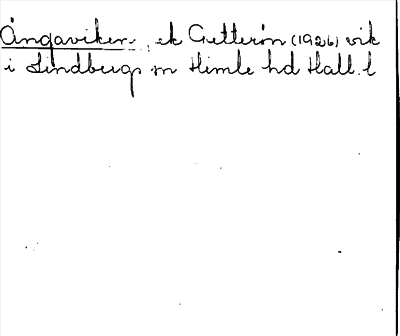 Ängaviken, ek Getterön (1926) vik
i Lindbergs sn Himle hd Hall. l